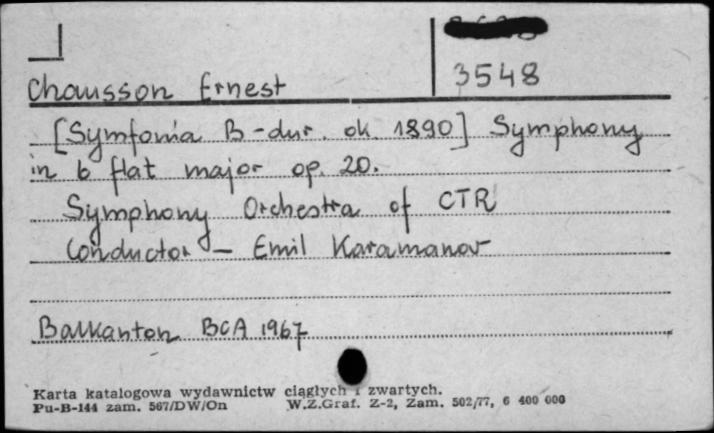 3548
Chausson Ernest
[Symfonia B-dur. ok. 1890] Symphony
in b flat major op. 20.
Symphony Orchestra of CTR
Conductor – Emil Karamanov
Balkanton BCA 1967
Karta katalogowa wydawnictw ciągłych i zwartych.
Pu-B-144 zam. 567/DW/On W.Z.Graf. Z-2, Zam. 502/77, 6 400 000